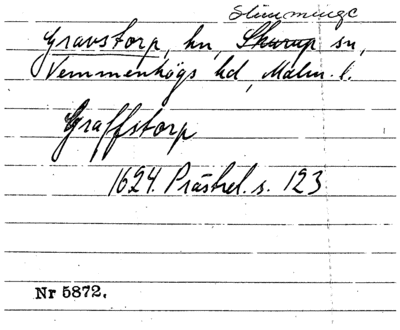 Slimminge
Gravstorp, hn, Skurup sn,
Vemmenhögs hd, Malm. l.
Graffstorp
1624. Prästrel. s. 123
Nr 5872.